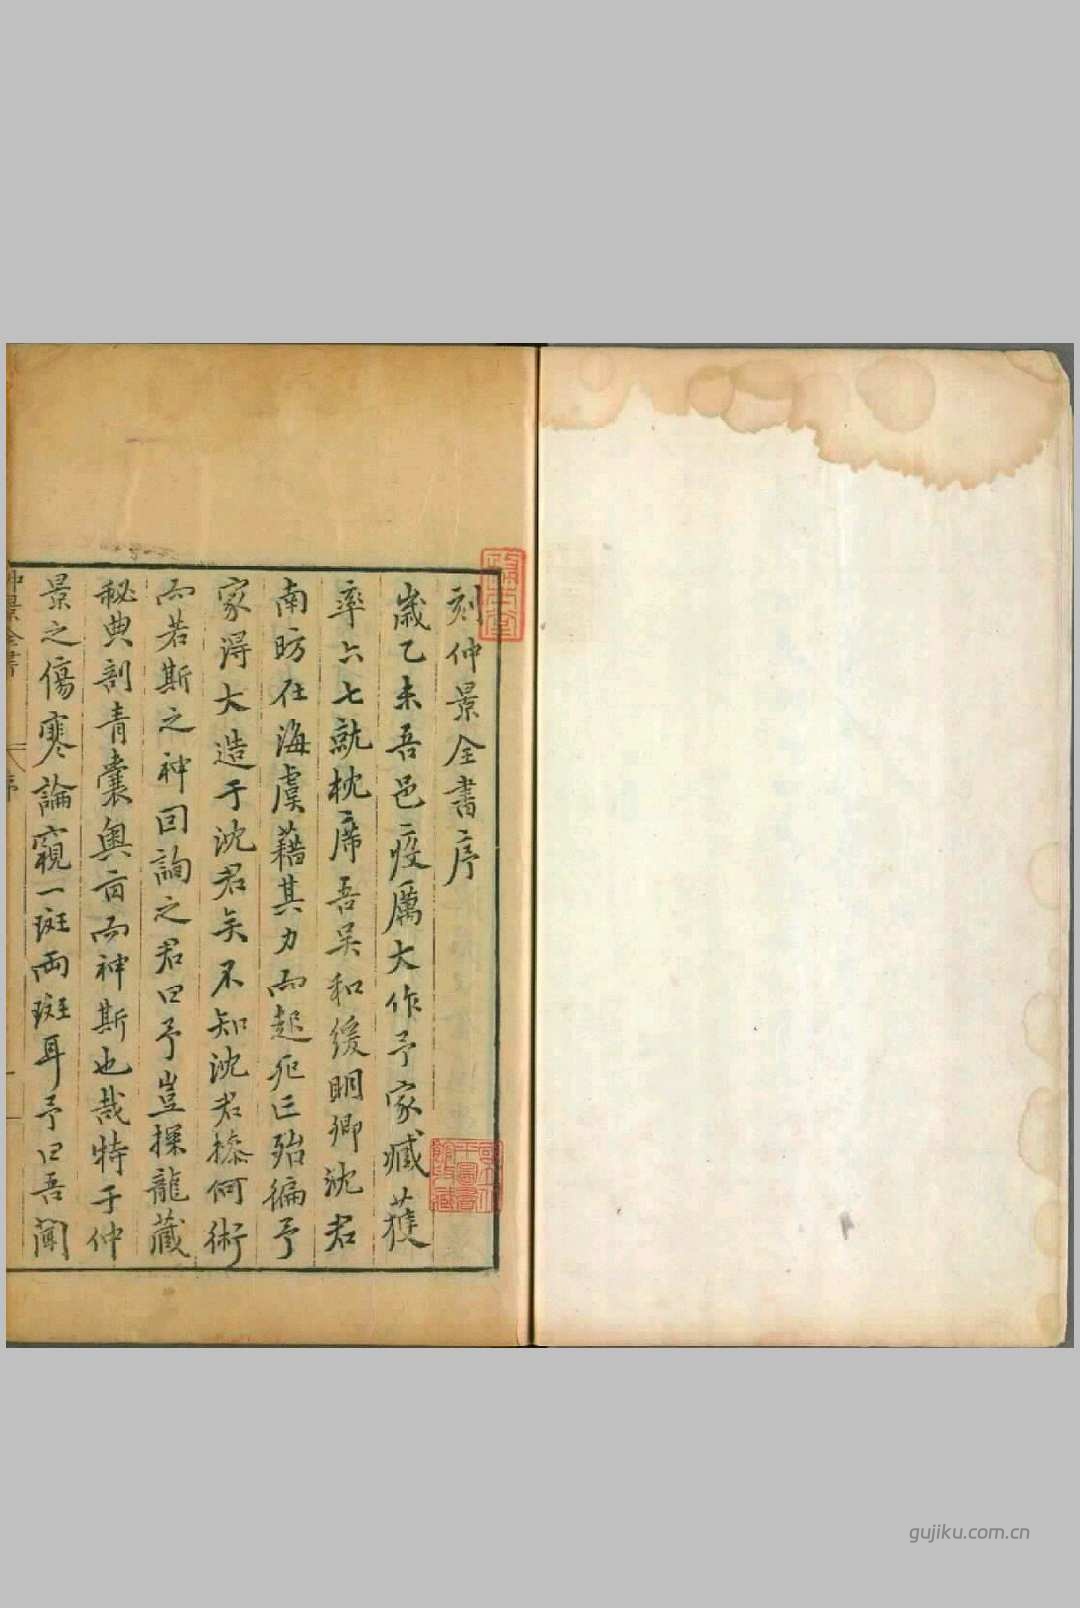 刻仲景全書序
歲乙未吾邑疫厲大作予家臧獲
率六七就枕席吾吳和緩明卿沈君
南昉在海虞藉其力而起死亡殆徧予
家淂大造于沈君矣不知沈君操何術
而若斯之神囙詢之君曰予豈探龍藏
秘典剖青囊奧旨而神斯也哉特于仲
景之傷寒論窺一斑兩斑耳予曰吾聞
仲景全書
序
gujiku.com.cn